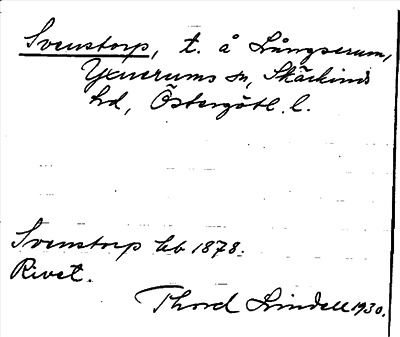 Svenstorp, t. å Långserum,
Yxnerums sn, Skärkinds
hd, Östergötl. l.
Svenstorp hb 1878.
Rivet.
Thord Lindell 1930.